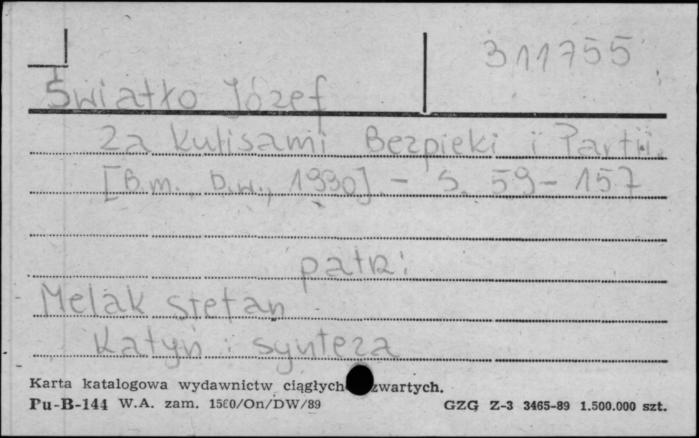 311755
Światło Józef
Za kulisami Bezpieki i Partii.
[B.m., b.w., 1990] - S. 59-157
patrz:
Melak Stefan
Katyń : synteza
Karta katalogowa wydawnictw ciągłych zwartych.
Pu-B-144 W.A. zam. 1560/On/DW/89 GZG Z-3 3465-89 1.500.000 szt.